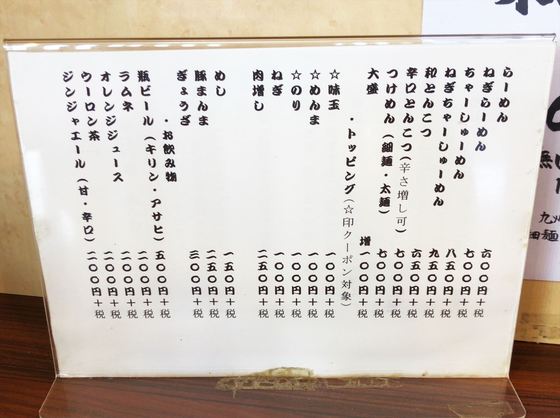 らーめん 六〇〇円+税
ねぎらーめん 七〇〇円+税
ちゃーしゅーめん 八五〇円+税
ねぎちゃーしゅーめん 九五〇円+税
和とんこつ 六五〇円+税
辛口とんこつ(辛さ増し可) 七〇〇円+税
つけめん(細麺・太麺) 七〇〇円+税
大盛 増一〇〇円+税
・トッピング(☆印クーポン対象)
☆味玉 一〇〇円+税
☆めんま 一〇〇円+税
☆のり 一〇〇円+税
ねぎ 一〇〇円+税
肉増し 二五〇円+税
めし 一五〇円+税
豚まんま 二五〇円+税
ぎょうざ 三〇〇円+税
・お飲み物
瓶ビール(キリン・アサヒ) 五〇〇円+税
ラムネ 二〇〇円+税
オレンジジュース 二〇〇円+税
ウーロン茶 二〇〇円+税
ジンジャエール(甘・辛口) 二〇〇円+税
無
九州
細麺